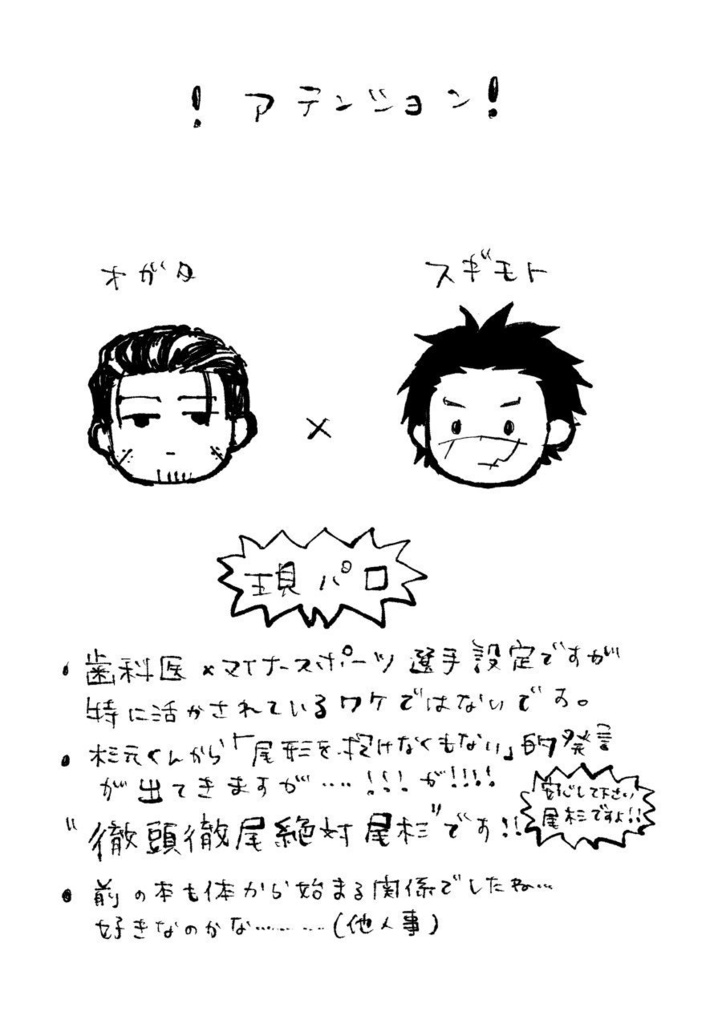 ! アテンション!
オガタ
スギモト
×
現パロ
・歯科医×マイナースポーツ選手設定ですが
特に活かされているワケではないです。
・杉元くんから「尾形を抱けなくもない」的発言
が出てきますが….!!!が!!!!
安心して下さい!
尾杉ですよ!!
"徹頭徹尾絶対尾杉"です!!
・前の本も体から始まる関係でしたね…
好きなのかな………(他人事)